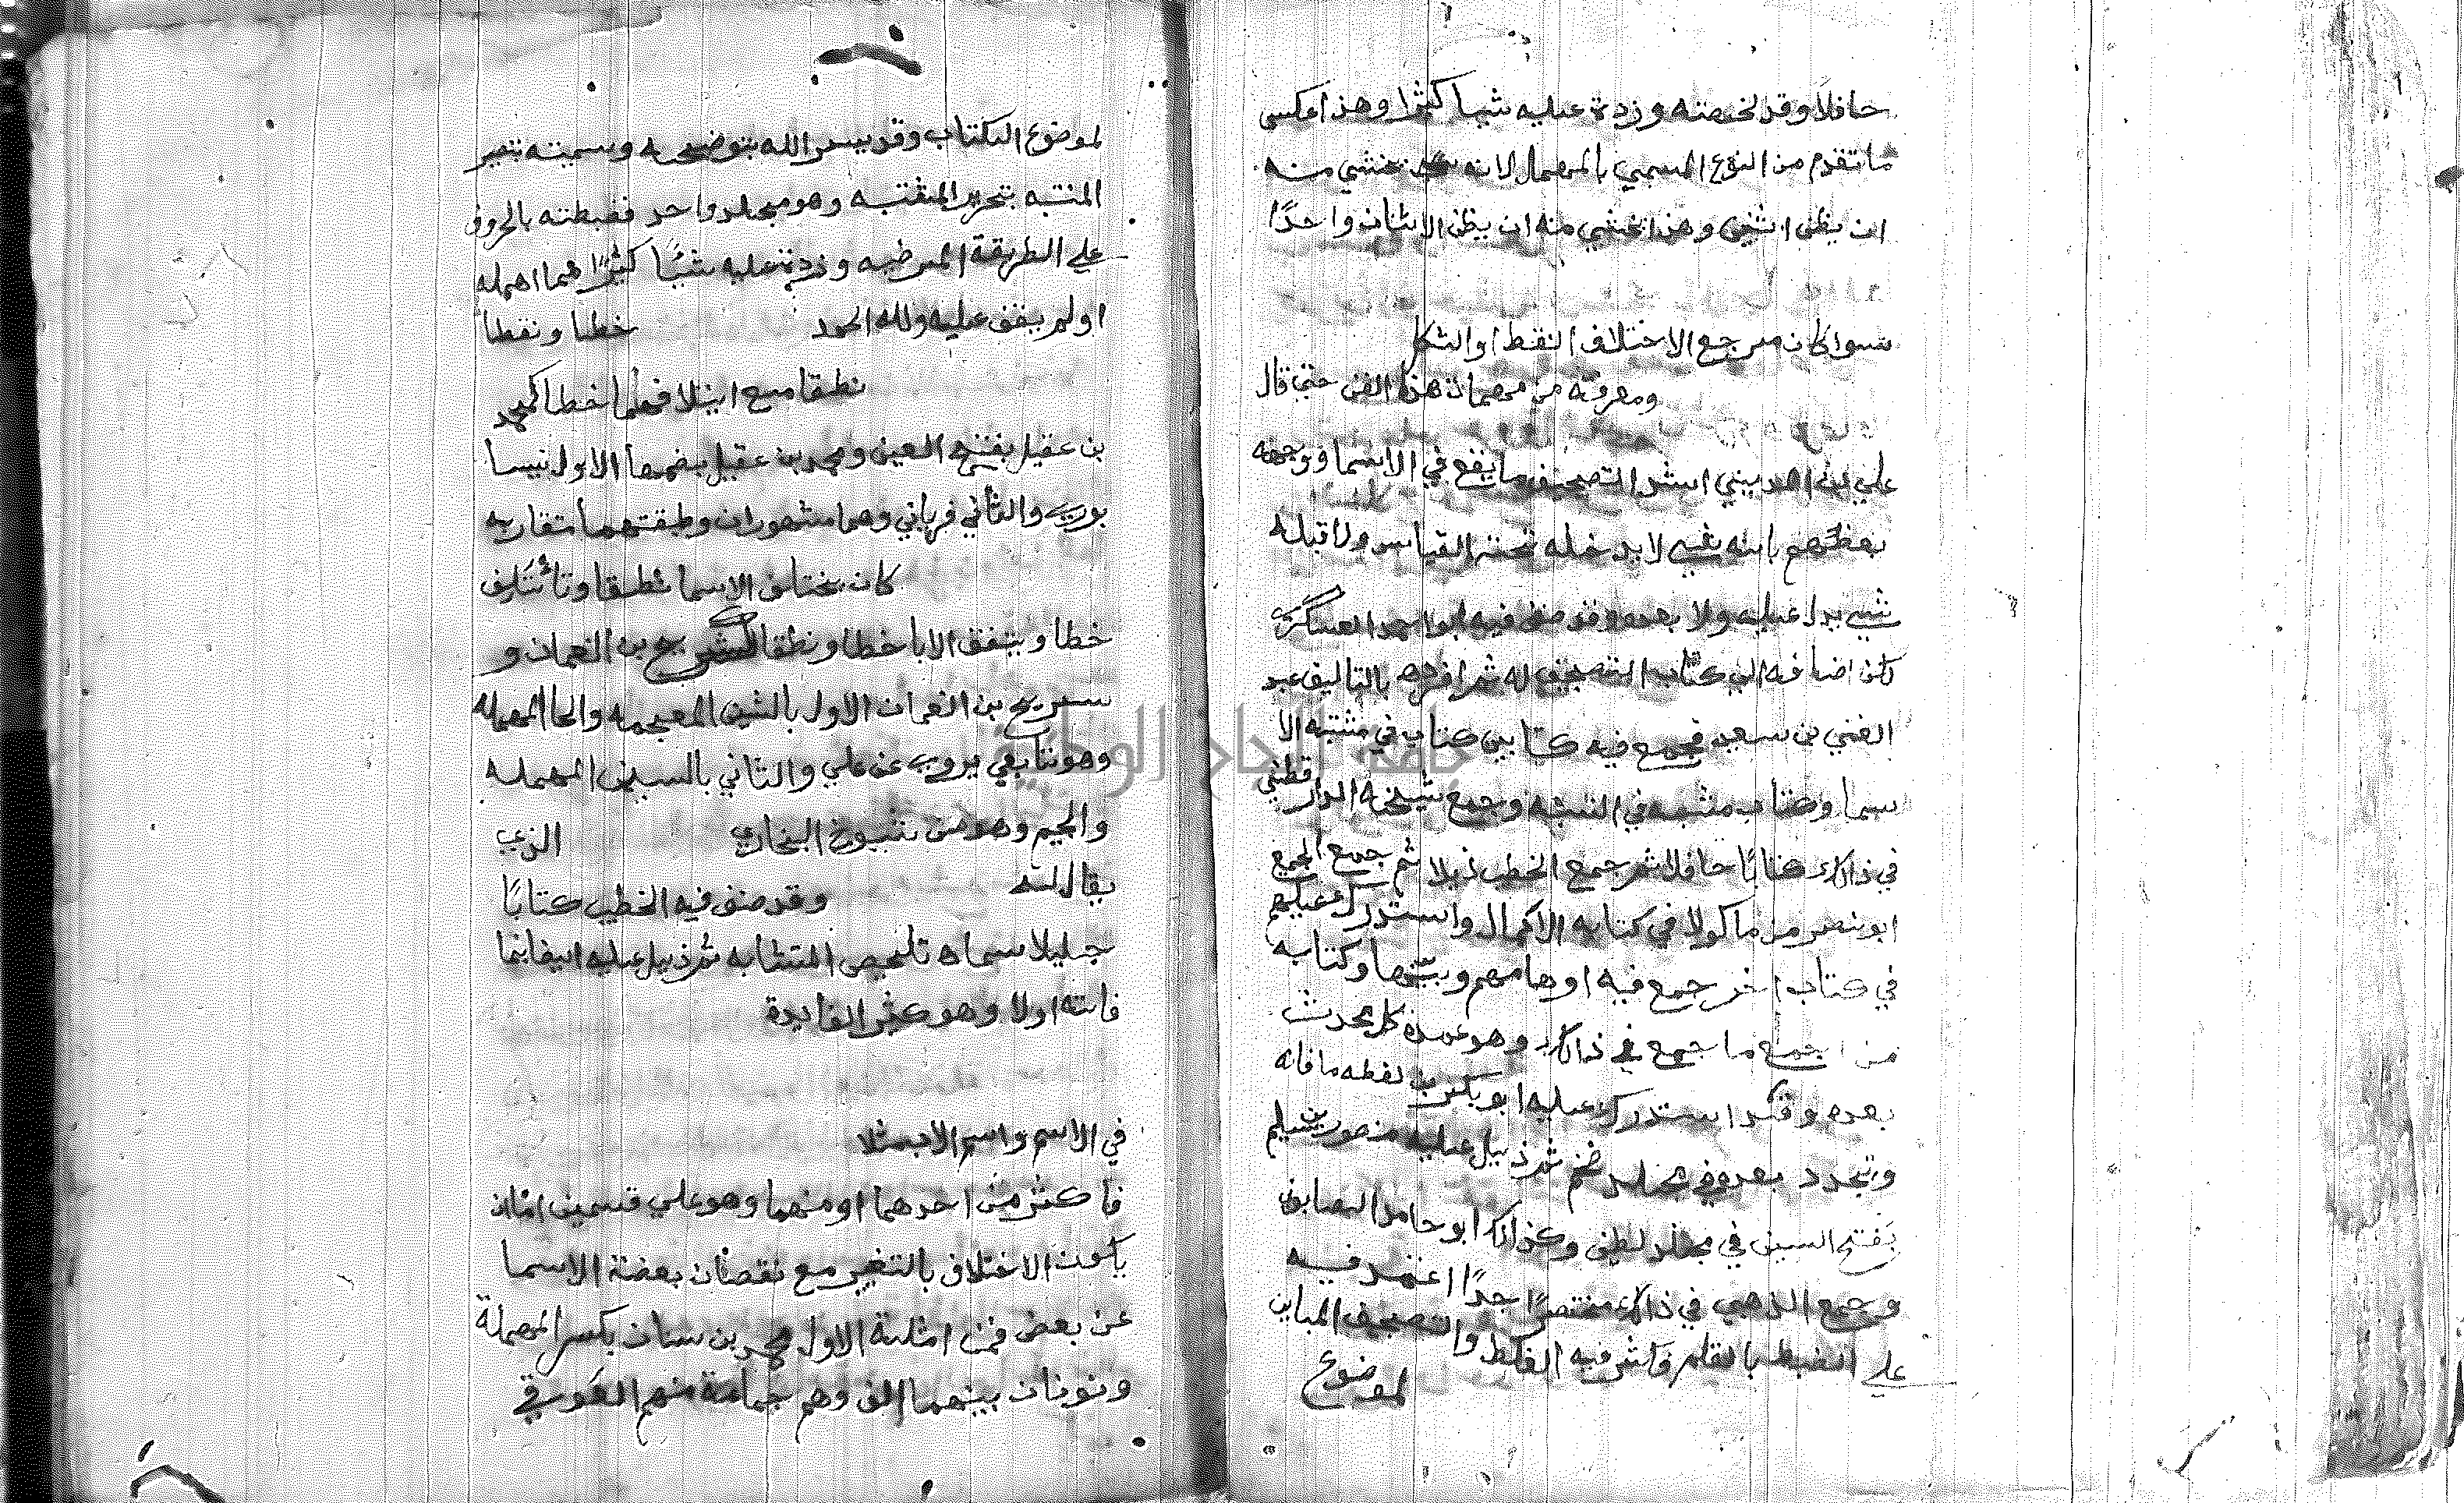 حافلا وقد لخصته وزدة عليه شيا كثيرا وهذا عكس
ما تقدم من النوع المسمي بالمهمل لانه يخشي منه
ان يظن اثنين وهذا يخشي منه ان يظن الاثنان واحدًا
سوا كان مرجع الاختلاف النقط او الشكل
ومعرفته من مهمات هذا الفن حتي قال
علي بن المديني اشد التصحيف ما يقع في الاسما ووجهه
بعضهم بانه شي لا يدخله القياس ولا قبله
شي يدل عليه ولا بعده وقد صنف فيه ابو احمد العسكري
لكن اضافه الي كتاب التصحيف له ثم افرده بالتاليف عبد
الغني بن سعيد فجمع فيه كتابين كتاب في مشتبه الا
سما وكتاب مشتبه في النسبه وجمع شيخه الدارقطني
في ذالك كتابًا حافلا ثم جمع الخطيب ذيلا ثم جمع الجميع
ابو نصر من ماكولا في كتابه الاكمال واستدرك عليهم
في كتاب اخر جمع فيه اوهامهم وبينها وكتابه
من اجمع ما جمع في ذالك وهو عمدة كل محدث
بعده وقد استدرك عليه ابو بكر بن نقطه ما فاته
وتجدد بعده في مجلد ضخم ثم ذيل عليه منصور بن سليم
بفتح السين في مجلد لطيف وكذالك ابو حامد الصابوني
وجمع الذهبي في ذالك مختصرًا جدًا اعتمد فيه
علي الضبط بالقلم فكثر فيه الغلط والتصحيف المباين
لموضوع
لموضوع الكتاب وقد يسر الله بتوضيحه وسميته تبصير
المنتبه بتحرير المشتبه وهو مجلد واحد فضبطته بالحروف
علي الطريقة المرضيه وزدة عليه شيًا كثيرًا مما اهمله
او لم يقف عليه ولله الحمد خطا ونقطا
نطقا مع ايتلافهما خطا كمحمد
بن عقيل بفتح العين ومحمد بن عقيل بضمها الاول نيسا
بوري والثاني فرياني وهما مشهوران وطبقتهما متقاربه
كان يختلف الاسما نطقا وتاتلف
خطا ويتفق الابا خطا ونطقا كشريح بن النعمان و
سريج بن النعمان الاول بالشين المعجمه والحا المهمله
وهو تابعي يروي عن علي والثاني بالسين المهمله
والجيم وهو من شيوخ البخاري الذي
يقال له وقد صنف فيه الخطيب كتابًا
جليلا سماه تلخيص المتشابه ثم ذيل عليه ايضا بما
فاته اولا وهو كثير الفايدة
في الاسم واسم الاب مثلا
فاكثر من احدهما او منهما وهو علي قسمين اما ان
يكون الاختلاف بالتغيير مع نقصان بعضة الاسما
عن بعض فمن امثلة الاول محمد بن سنان بكسر المهملة
ونونان بينهما الف وهم جماعة منهم العوقي